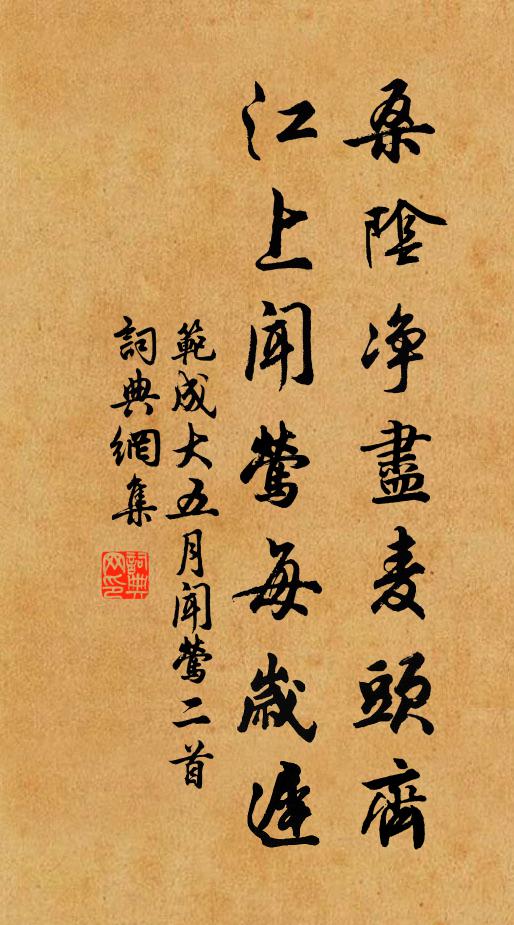 桑陰净盡麦頭齊
江上聞鶯每歲遲
範成大五月聞鶯二首
詞典網集
詞典網印